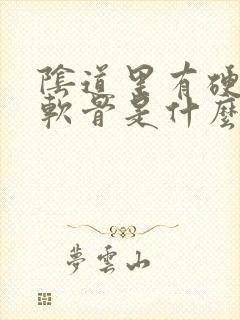 陰道里有硬
軟骨是什麼
夢雲山